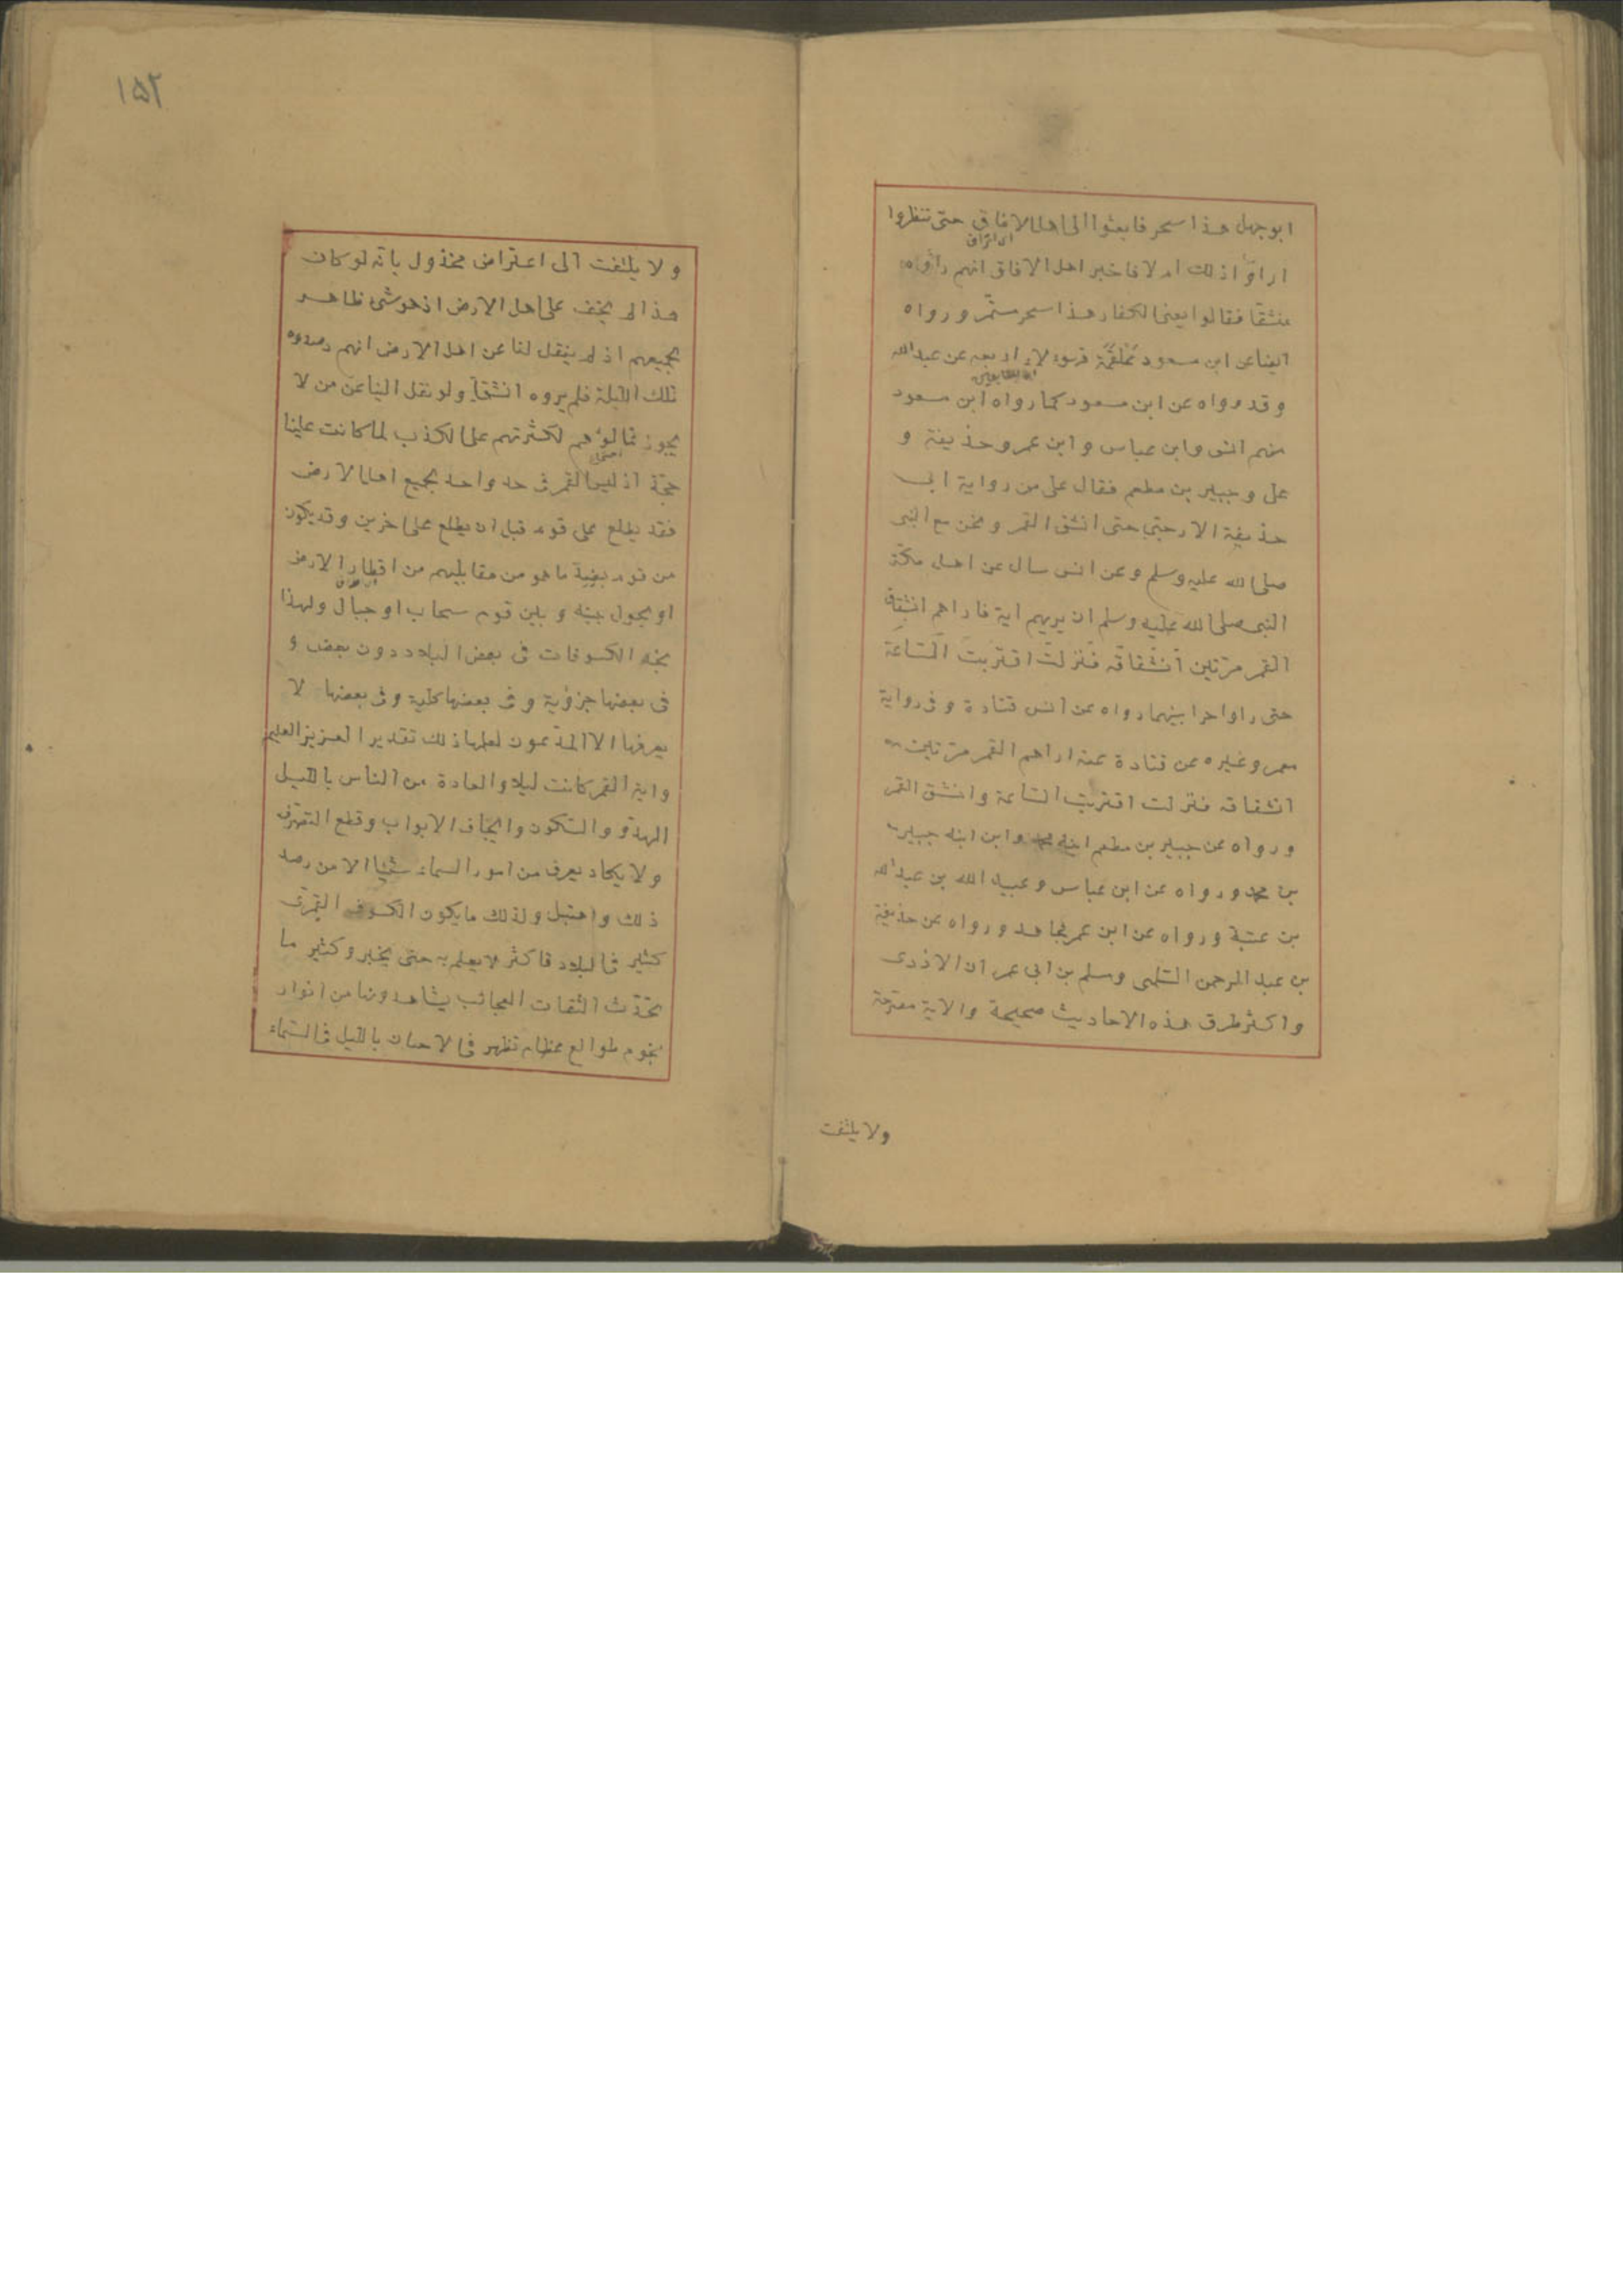 ابوجهل هذا سحر فابعثوا الى اهل الافاق حتى تنظروا
اراوا ذلك ام لا فاخبر اهل الافاق انهم راوه
منشقا فقالوا يعنى الكفار هذا سحر مستمر ورواه
ايضا عن ابن مسعود علقمة فهؤلاء اربعة عن عبد الله
وقد رواه عن ابن مسعود كما رواه ابن مسعود
منهم انس وابن عباس وابن عمر وحذيفة و
على وجبير بن مطعم فقال على من رواية ابى
حذيفة الارحبى حتى انشق القمر ونحن مع النبى
صلى الله عليه وسلم وعن انس سال عن اهل مكة
النبى صلى الله عليه وسلم ان يريهم اية فاراهم انشقاق
القمر مرتين انشقاقه فنزلت اقتربت الساعة
حتى راوا حرا بينهما رواه عن انس قتادة وفى رواية
معمر وغيره عن قتادة عنه اراهم القمر مرتين
انشقاقه فنزلت اقتربت الساعة وانشق القمر
ورواه عن جبير بن مطعم ابنه محمد وابن ابنه جبير
بن محمد ورواه عن ابن عباس وعبيد الله بن عبد الله
بن عتبة ورواه عن ابن عمر مجاهد ورواه عن حذيفة
بن عبد الرحمن السلمى ومسلم بن ابى عمران الازدى
واكثر طرق هذه الاحاديث صحيحة والاية مصرحة
ولا يلتفت
١٥٢
ولا يلتفت الى اعتراض مخذول بانه لو كان
هذا لم يخف على اهل الارض اذ هو شئ ظاهر
لجميعهم اذ لم ينقل لنا عن اهل الارض انهم رصدوه
تلك الليلة فلم يروه انشق ولو نقل الينا عن من لا
يجوز تمالؤهم لكثرتهم على الكذب لما كانت علينا
حجة اذ ليس القمر فى حد واحد لجميع اهل الارض
فقد يطلع على قوم قبل ان يطلع على اخرين وقد يكون
من قوم بضد ما هو من مقابليهم من اقطار الارض
او يحول بينه وبين قوم سحاب او جبال ولهذا
نجد الكسوفات فى بعض البلاد دون بعض و
فى بعضها جزؤية وفى بعضها كلية وفى بعضها لا
يعرفها الا المدعون لعلمها ذلك تقدير العزيز العليم
واية القمر كانت ليلا والعادة من الناس بالليل
الهدو والسكون وايجاف الابواب وقطع التصرف
ولا يكاد يعرف من امور السماء شيئا الا من رصد
ذلك واهتبل ولذلك ما يكون الكسوف القمرى
كثير فى البلاد فاكثر لا يعلم به حتى يخبر وكثير ما
تحدث الثقات العجائب يشاهدونها من انوار
نجوم طوالع عظام تظهر فى الاحيان بالليل فى السماء